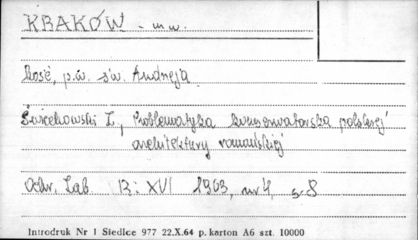 KRAKÓW - m.w.
kość. p.w. św. Andrzeja
Świechowski Z., Problematyka konserwatorska polskiej
architektury romańskiej
Ochr. Zab. R: XVI 1963, nr 4, s. 8
Introdruk Nr 1 Siedlce 977 22.X.64 p. karton A6 szt. 10000